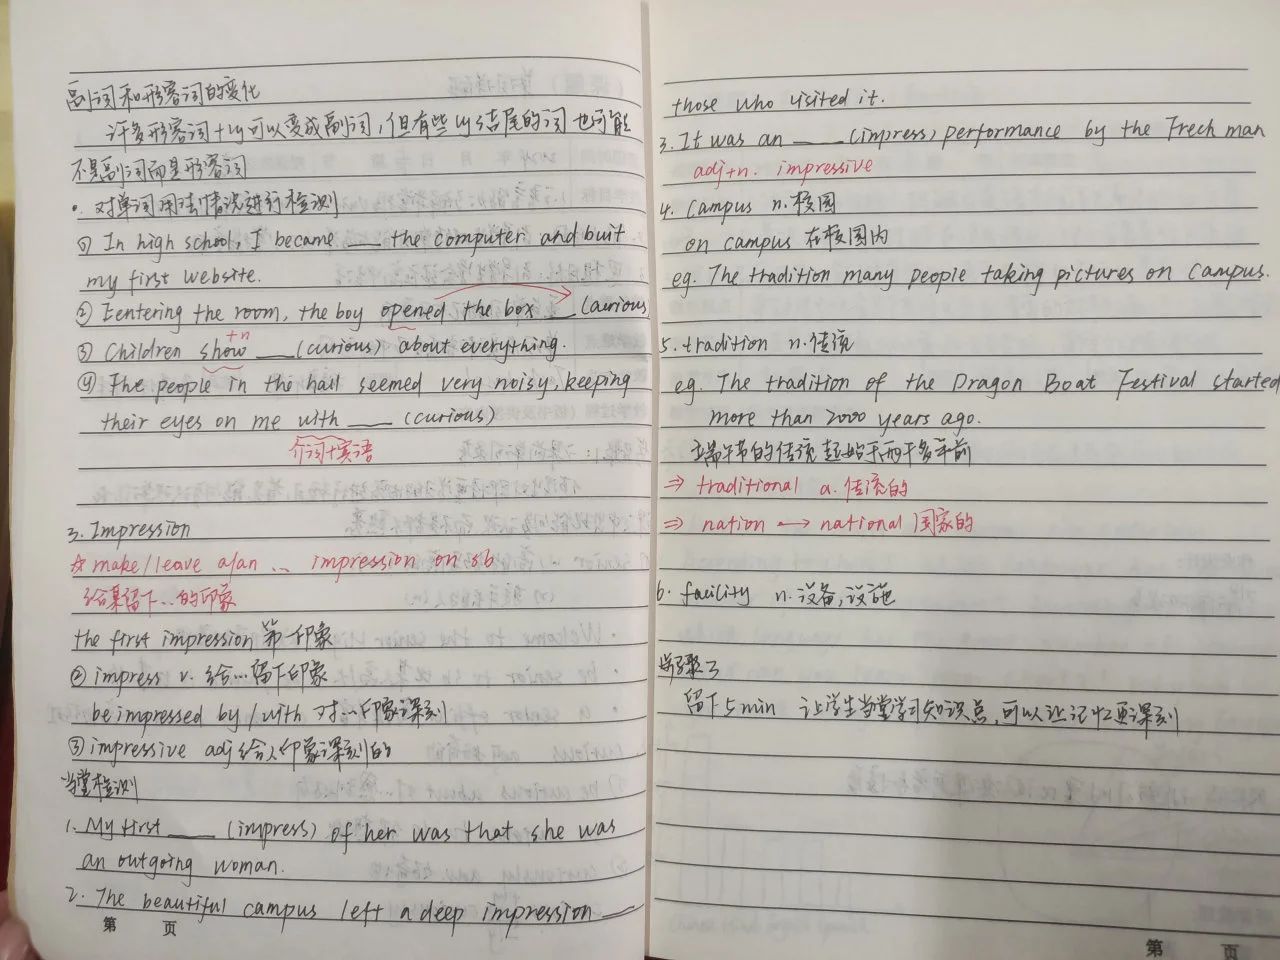 副词和形容词的变化
许多形容词+ly可以变成副词,但有些ly结尾的词也可能
不是副词而是形容词
• 对单词用法情况进行检测
① In high school, I became ___ the computer and buit
my first website.
② Eentering the room, the boy opened the box ___ (curious
+n
③ Children show ___ (curious) about everything.
④ The people in the hall seemed very noisy, keeping
their eyes on me with ___ (curious)
介词+宾语
3. Impression
☆ make/leave a/an ... impression on sb
给某留下...的印象
the first impression 第一印象
② impress v. 给...留下印象
be impressed by/with 对...印象深刻
③ impressive adj 给人印象深刻的
当堂检测
1. My first ___ (impress) of her was that she was
an outgoing woman.
2. The beautiful campus left a deep impression ___
第 页
those who visited it.
3. It was an ___ (impress) performance by the Frech man
adj+n. impressive
4. Campus n. 校园
on campus 在校园内
eg. The tradition many people taking pictures on campus.
5. tradition n. 传统
eg. The tradition of the Dragon Boat Festival started
more than 2000 years ago.
端午节的传统起始于两千多年前
⇒ traditional a. 传统的
⇒ nation ⟷ national 国家的
6. facility n. 设备,设施
步骤3
留下5min 让学生当堂学习知识点,可以让记忆更深刻
第 页